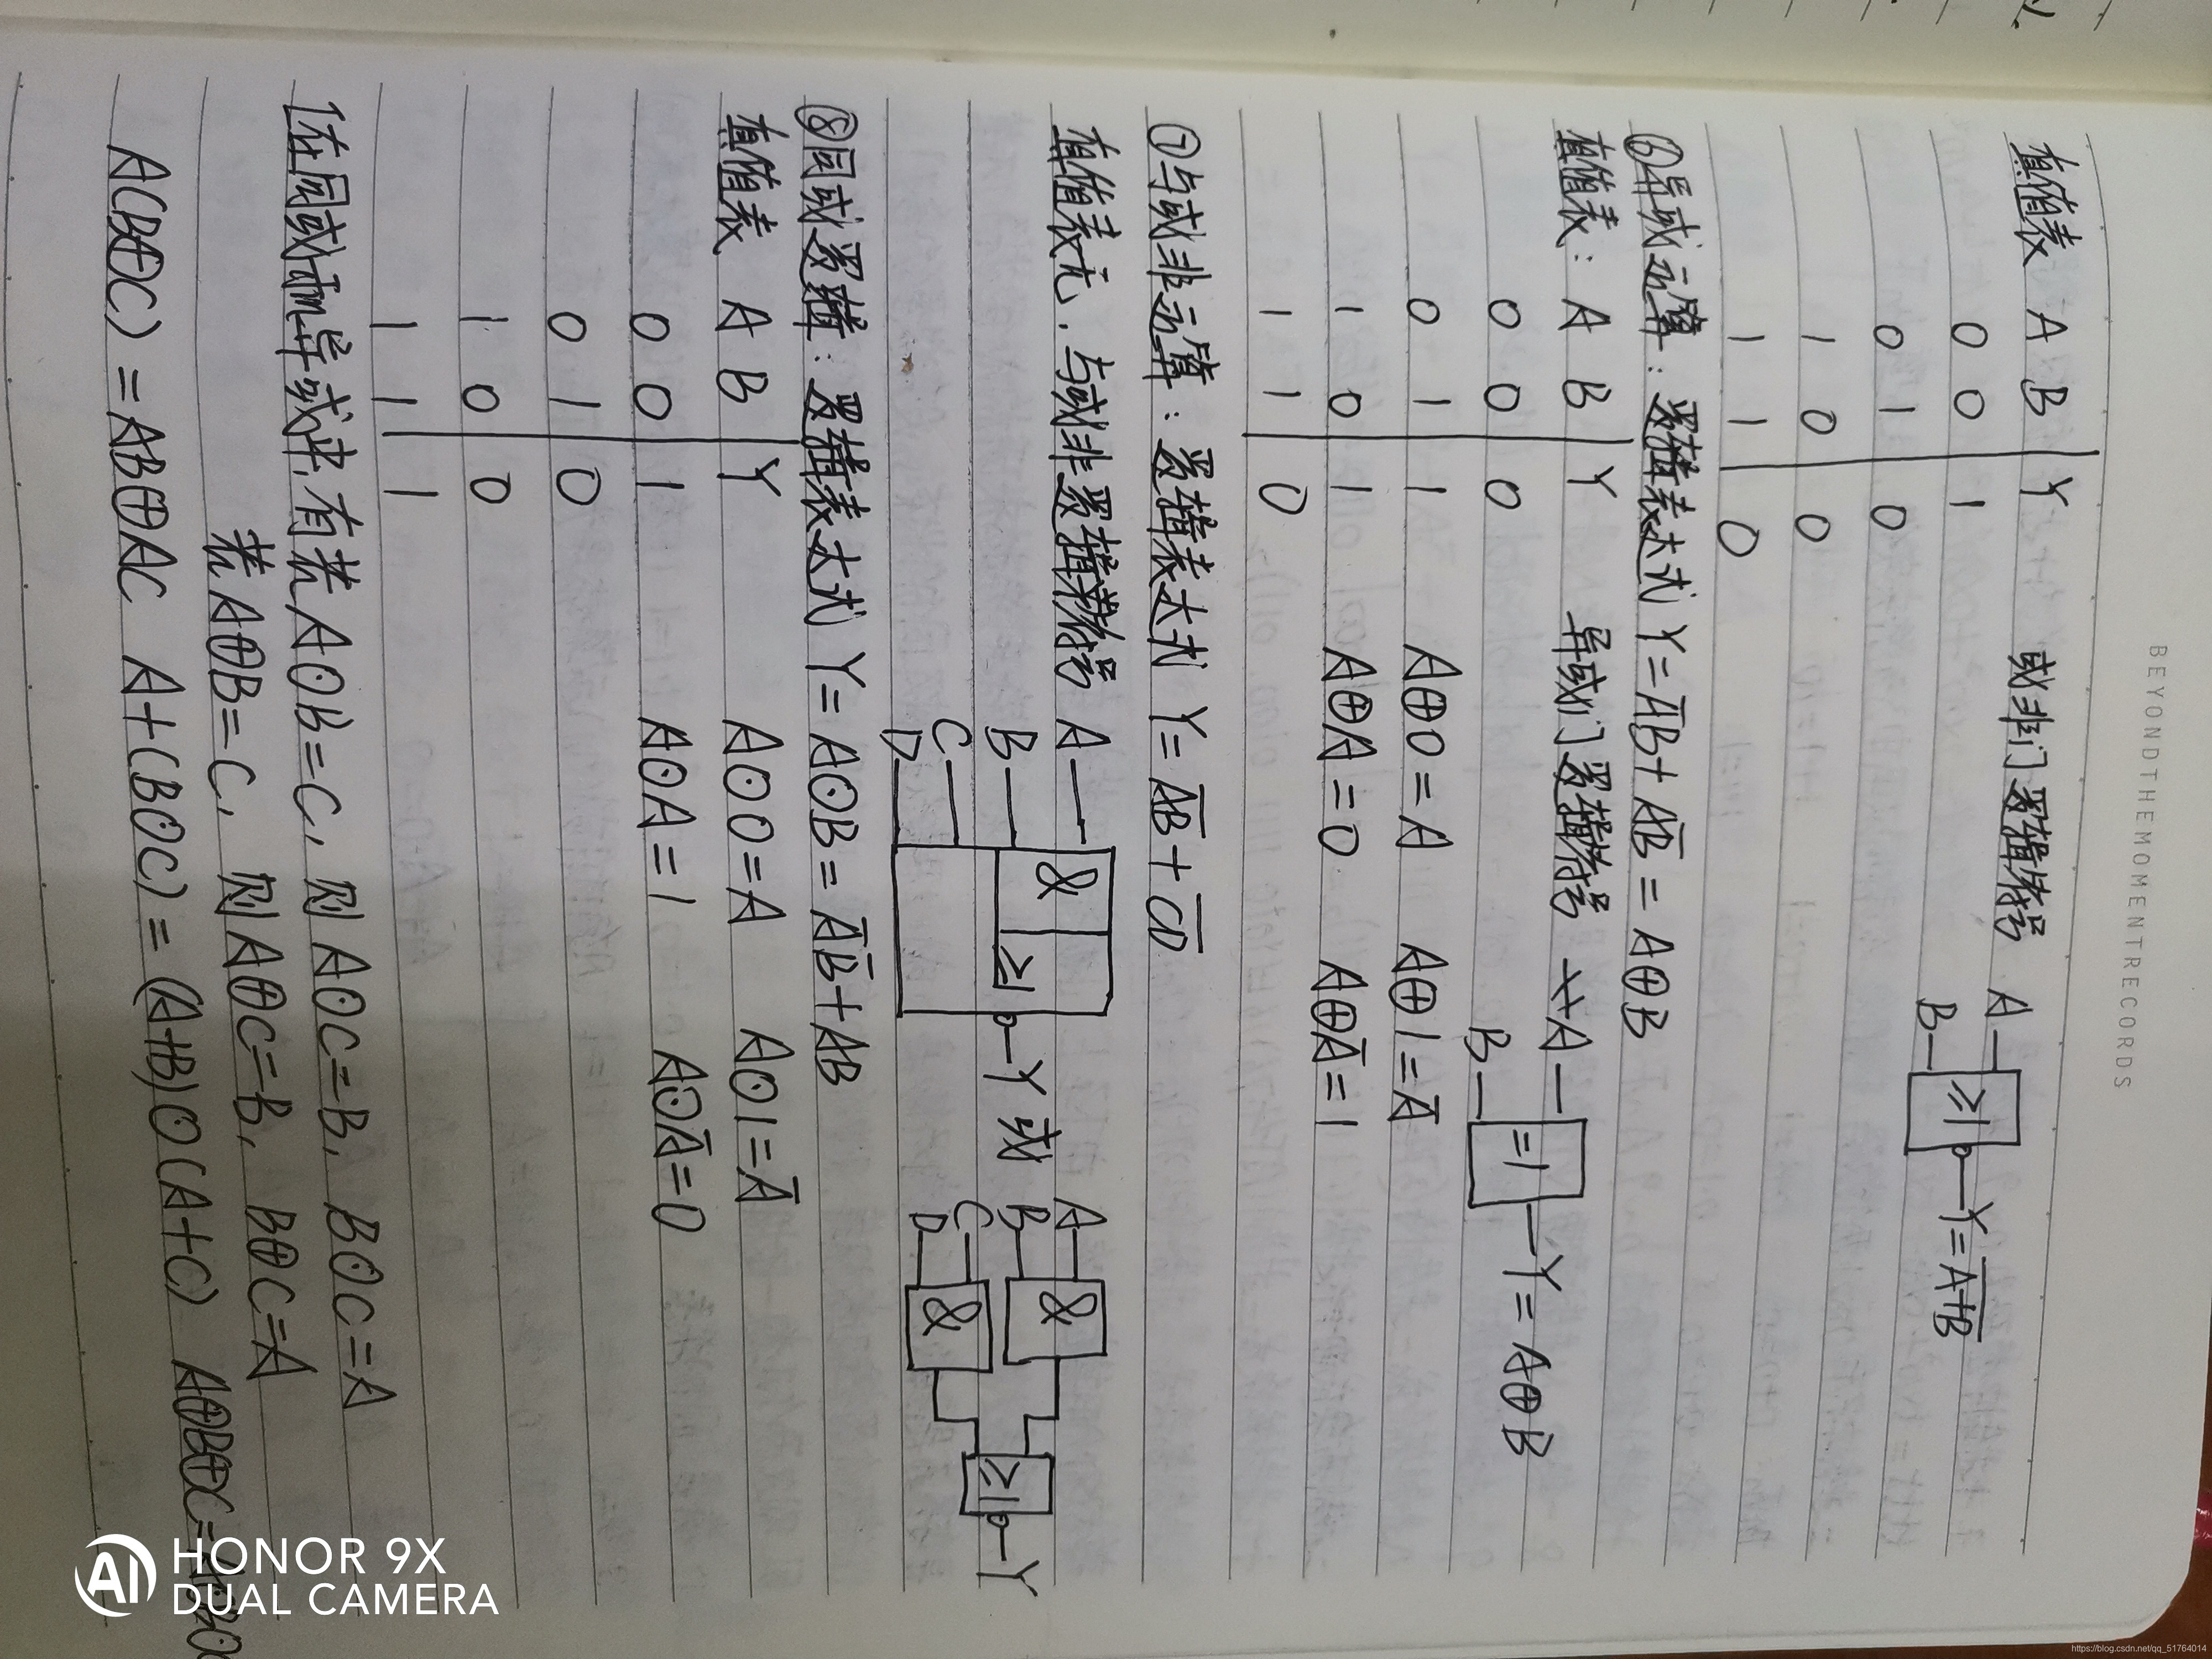 BEYONDTHEMOMENTRECORDS
真值表 A B Y 或非门逻辑符号 A B ≥1 Y=A̅+̅B̅
0 0 1
0 1 0
1 0 0
1 1 0
⑥异或运算:逻辑表达式 Y=A̅B+AB̅=A⊕B
真值表: A B Y 异或门逻辑符号 A B =1 Y=A⊕B
0 0 0
0 1 1 A⊕0=A A⊕1=A̅
1 0 1 A⊕A=0 A⊕A̅=1
1 1 0
⑦与或非运算:逻辑表达式 Y=A̅B̅+C̅D̅
真值表完.与或非逻辑符号 A B C D & ≥1 Y 或 A B C D & & ≥1 Y
⑧同或逻辑:逻辑表达式 Y=A⊙B=A̅B̅+AB
真值表 A B Y A⊙0=A A⊙1=A̅
0 0 1 A⊙A=1 A⊙A̅=0
0 1 0
1 0 0
1 1 1
在同或和异或中,有若A⊙B=C,则A⊙C=B,B⊙C=A
若A⊕B=C,则A⊕C=B,B⊕C=A
A(B⊕C)=AB⊕AC A+(B⊙C)=(A+B)⊙(A+C) A⊕B⊕C=
HONOR 9X
DUAL CAMERA
AI
https://blog.csdn.net/qq_51764014